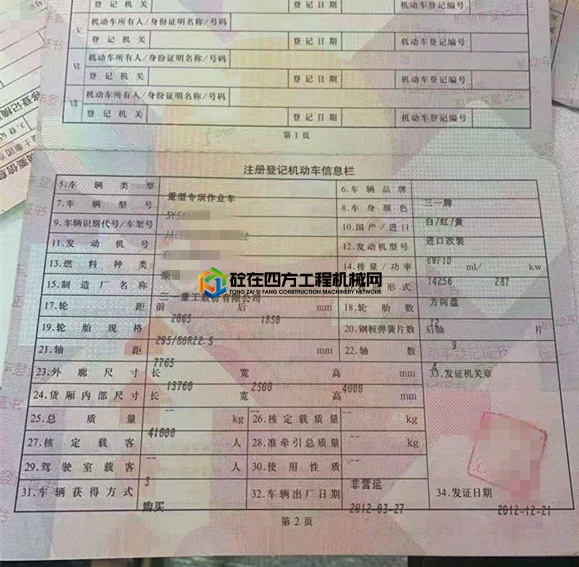 登 记 机 关 登 记 日 期 机动车登记编号
V 机动车所有人/身份证明名称/号码
登 记 机 关 登 记 日 期 机动车登记编号
VI 机动车所有人/身份证明名称/号码
登 记 机 关 登 记 日 期 机动车登记编号
VII 机动车所有人/身份证明名称/号码
登 记 机 关 登 记 日 期 机动车登记编号
第 1 页
注册登记机动车信息栏
5.车 辆 类 型 重型专项作业车 6.车 辆 品 牌 三一牌
7.车 辆 型 号 8.车 身 颜 色 白/红/黄
9.车辆识别代号/车架号 10.国 产 / 进 口 进口改装
11.发 动 机 号 12.发 动 机 型 号 6WF1D
13.燃 料 种 类 柴油 14.排 量 / 功 率 14256 ml/ 287 kw
15.制 造 厂 名 称 三一重工股份有限公司 形 式 方向盘
17.轮 距 前 2065 后 1850 mm 18.轮 胎 数 12
19.轮 胎 规 格 295/80R22.5 20.钢板弹簧片数 后轴 9 片
21.轴 距 7765 mm 22.轴 数
23.外 廓 尺 寸 长 13760 宽 2500 高 4000 mm 33.发证机关章
24.货厢内部尺寸 长 -- 宽 -- 高 -- mm
25.总 质 量 41000 kg 26.核 定 载 质 量 -- kg
27.核 定 载 客 人 28.准牵引总质量 -- kg
29.驾 驶 室 载 客 3 人 30.使 用 性 质 非营运
31.车 辆 获 得 方 式 购买 32.车 辆 出 厂 日 期 2012-03-27 34.发证日期 2012-12-21
第 2 页
砼在四方工程机械网
TONG ZAI SI FANG CONSTRUCTION MACHINERY NETWORK